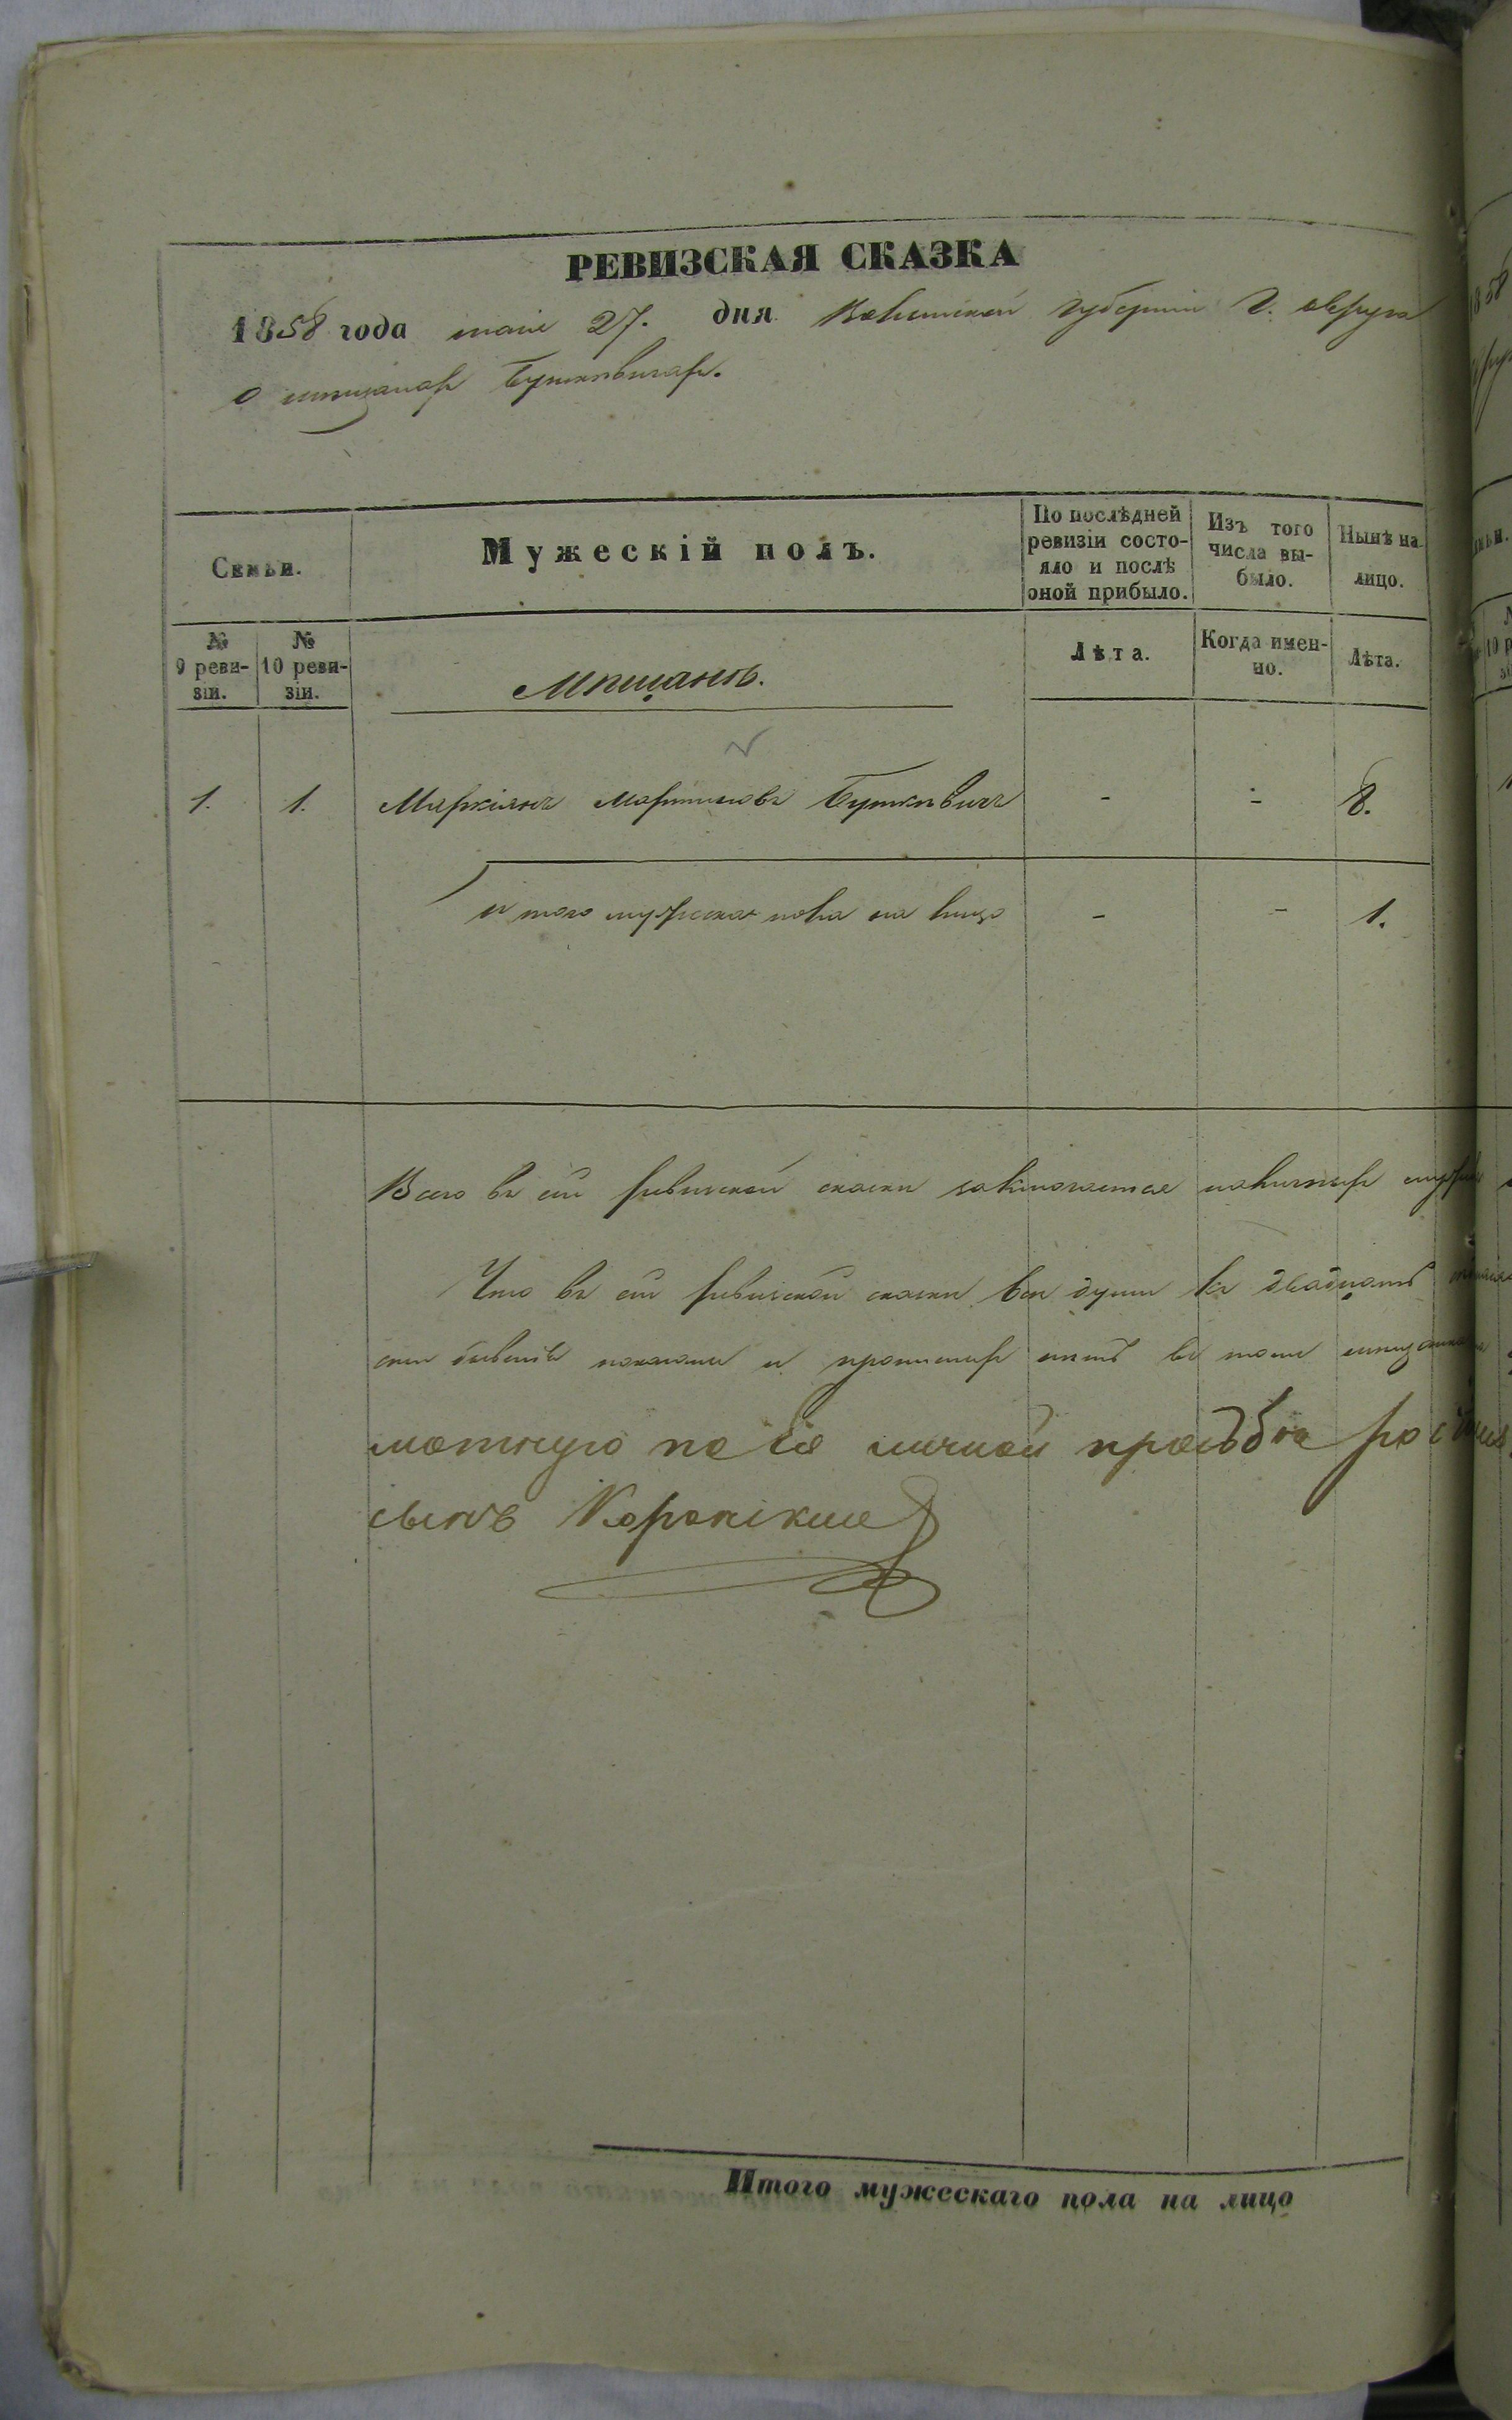 РЕВИЗСКАЯ СКАЗКА
1858 года маія 27. дня Волынской губерніи Г. Овруча
о мѣщанах Буткѣвичах.
Семьи.
Мужескій полъ.
По послѣдней ревизіи состояло и послѣ оной прибыло.
Изъ того числа выбыло.
Нынѣ на лицо.
№ 9 ревизіи.
№ 10 ревизіи.
Мѣщанъ.
Лѣта.
Когда именно.
Лѣта.
1. 1. Маркіянъ Мартиновъ Буткѣвичъ - - 8.
и того мужеска пола на лицо - - 1.
Всего въ сей ревизской сказки заключается наличных
Что въ сей ревизской сказки все души къ двадцать
показаны и прописных нетъ в том
мотную по ее личной прозьбѣ
сынъ
Итого мужескаго пола на лицо